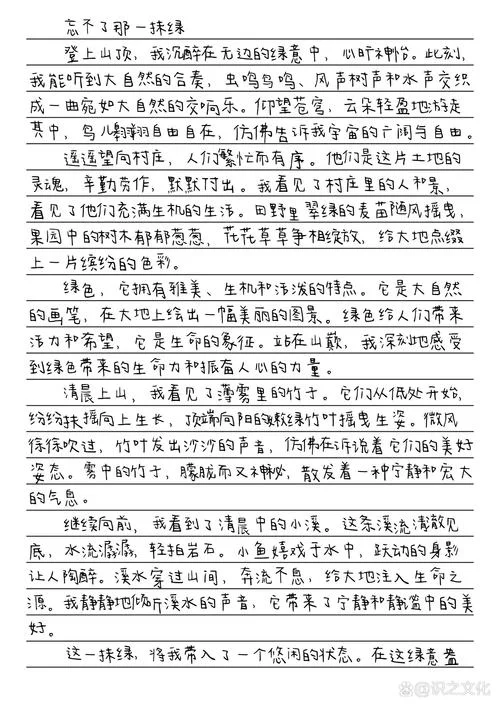 忘不了那一抹绿
登上山顶，我沉醉在无边的绿意中，心旷神怡。此刻，
我能听到大自然的合奏，虫鸣鸟鸣、风声树声和水声交织
成一曲宛如大自然的交响乐。仰望苍穹，云朵轻盈地游走
其中，鸟儿翱翔自由自在，仿佛告诉我宇宙的广阔与自由。
遥遥望向村庄，人们繁忙而有序。他们是这片土地的
灵魂，辛勤劳作，默默付出。我看见了村庄里的人和景，
看见了他们充满生机的生活。田野里翠绿的麦苗随风摇曳，
果园中的树木郁郁葱葱，花花草草争相绽放，给大地点缀
上一片缤纷的色彩。
绿色，它拥有雅美、生机和活泼的特点。它是大自然
的画笔，在大地上绘出一幅美丽的图景。绿色给人们带来
活力和希望，它是生命的象征。站在山巅，我深刻地感受
到绿色带来的生命力和振奋人心的力量。
清晨上山，我看见了薄雾里的竹子。它们从低处开始，
纷纷扶摇向上生长，顶端向阳的嫩绿竹叶摇曳生姿。微风
徐徐吹过，竹叶发出沙沙的声音，仿佛在诉说着它们的美好
姿态。雾中的竹子，朦胧而又神秘，散发着一种宁静和宏大
的气息。
继续向前，我看到了清晨中的小溪。这条溪流清澈见
底，水流潺潺，轻拍岩石。小鱼嬉戏于水中，跃动的身影
让人陶醉。溪水穿过山间，奔流不息，给大地注入生命之
源。我静静地倾听溪水的声音，它带来了宁静和静谧中的美
好。
这一抹绿，将我带入了一个悠闲的状态。在这绿意盎
@识之文化